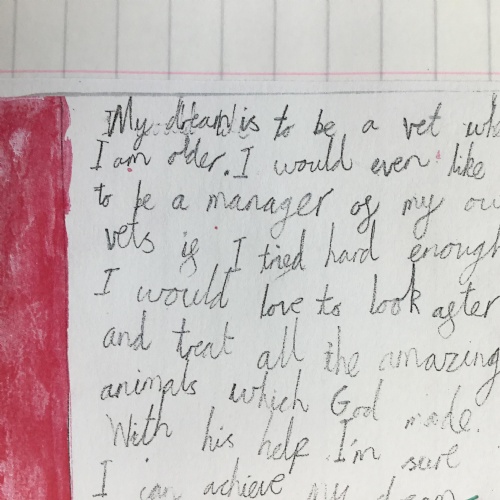 My dream is to be a vet whe
I am older. I would even like
to be a manager of my ow
vets if I tried hard enough
I would love to look after
and treat all the amazing
animals which God made.
With his help I'm sure
I can achieve My dream